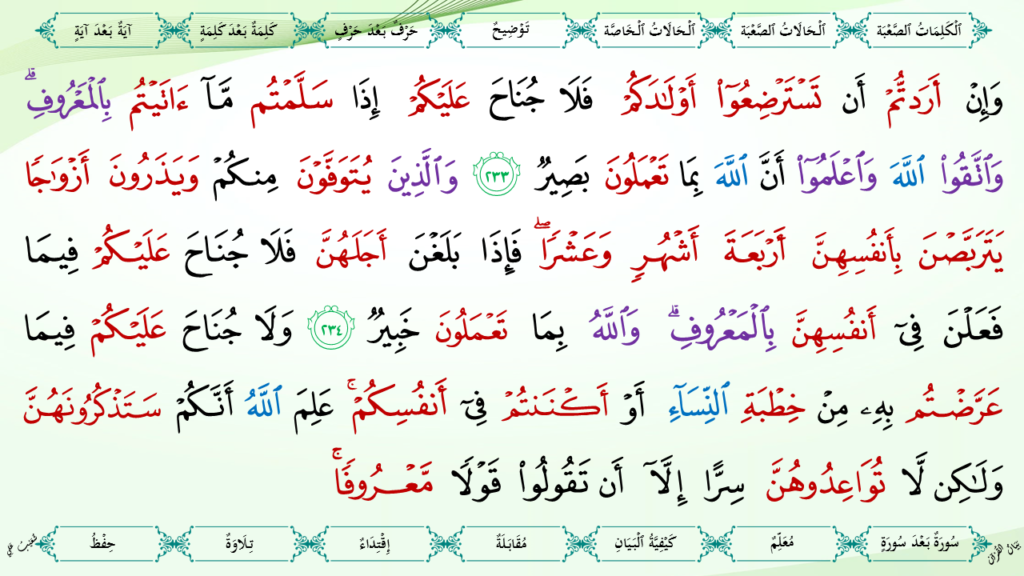 اَلْكَلِمَاتُ الصَّعْبَة اَلْحَالَاتُ الصَّعْبَة اَلْحَالَاتُ الْخَاصَّة تَوْضِيحٌ حَرْفٌ بَعْدَ حَرْفٍ كَلِمَةٌ بَعْدَ كَلِمَةٍ آيَةٌ بَعْدَ آيَةٍ
وَإِنْ أَرَدتُّمْ أَن تَسْتَرْضِعُوٓا۟ أَوْلَـٰدَكُمْ فَلَا جُنَاحَ عَلَيْكُمْ إِذَا سَلَّمْتُم مَّآ ءَاتَيْتُم بِٱلْمَعْرُوفِ ۗ
وَٱتَّقُوا۟ ٱللَّهَ وَٱعْلَمُوٓا۟ أَنَّ ٱللَّهَ بِمَا تَعْمَلُونَ بَصِيرٌ ٢٣٣ وَٱلَّذِينَ يُتَوَفَّوْنَ مِنكُمْ وَيَذَرُونَ أَزْوَٰجًا
يَتَرَبَّصْنَ بِأَنفُسِهِنَّ أَرْبَعَةَ أَشْهُرٍ وَعَشْرًا ۖ فَإِذَا بَلَغْنَ أَجَلَهُنَّ فَلَا جُنَاحَ عَلَيْكُمْ فِيمَا
فَعَلْنَ فِىٓ أَنفُسِهِنَّ بِٱلْمَعْرُوفِ ۗ وَٱللَّهُ بِمَا تَعْمَلُونَ خَبِيرٌ ٢٣٤ وَلَا جُنَاحَ عَلَيْكُمْ فِيمَا
عَرَّضْتُم بِهِۦ مِنْ خِطْبَةِ ٱلنِّسَآءِ أَوْ أَكْنَنتُمْ فِىٓ أَنفُسِكُمْ ۚ عَلِمَ ٱللَّهُ أَنَّكُمْ سَتَذْكُرُونَهُنَّ
وَلَـٰكِن لَّا تُوَاعِدُوهُنَّ سِرًّا إِلَّآ أَن تَقُولُوا۟ قَوْلًا مَّعْرُوفًا ۚ
سُورَةٌ بَعْدَ سُورَةٍ مُعَلِّمٌ كَيْفِيَّةُ الْبَيَانِ مُقَابَلَةٌ إِقْتِدَاءٌ تِلَاوَةٌ حِفْظٌ